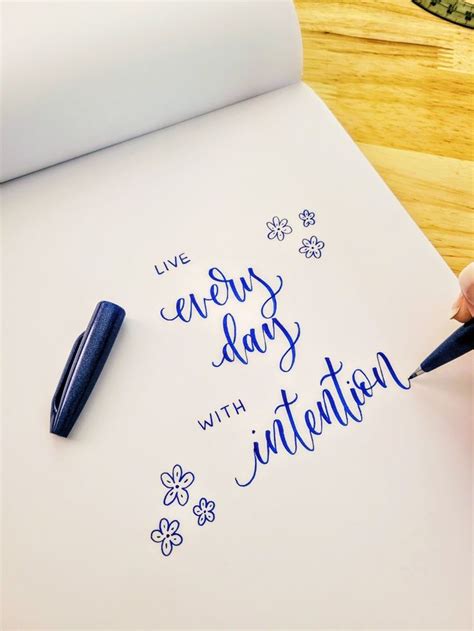 LIVE
every
day
WITH
intention